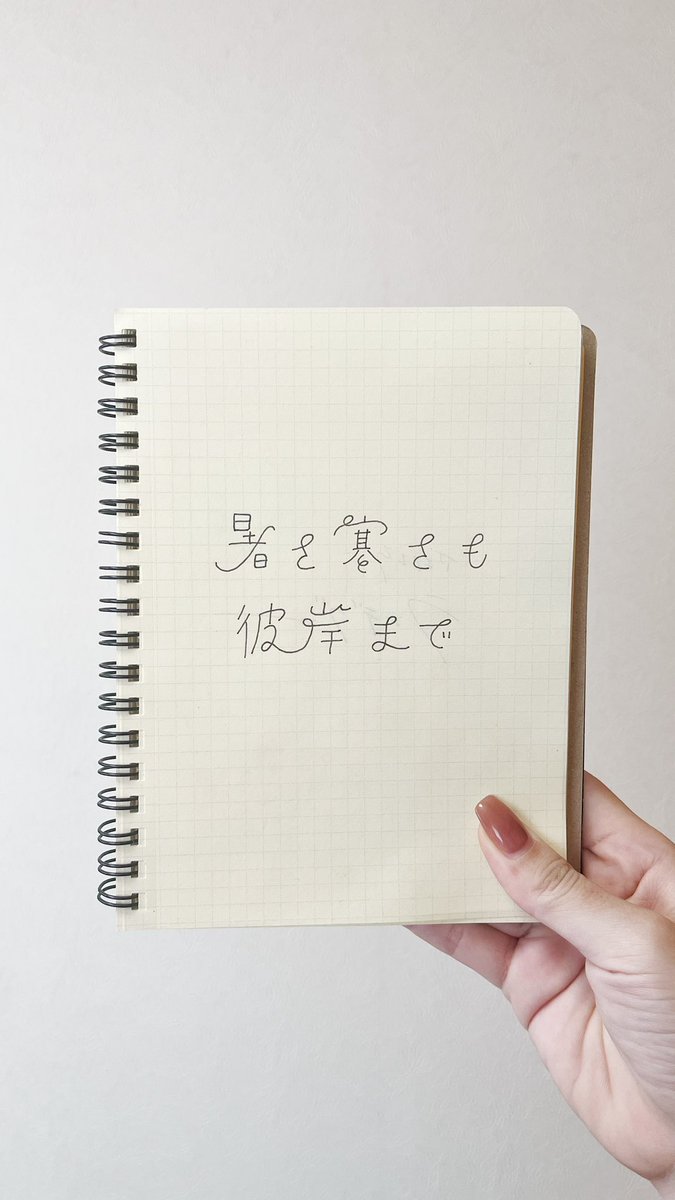 暑さ寒さも
彼岸まで